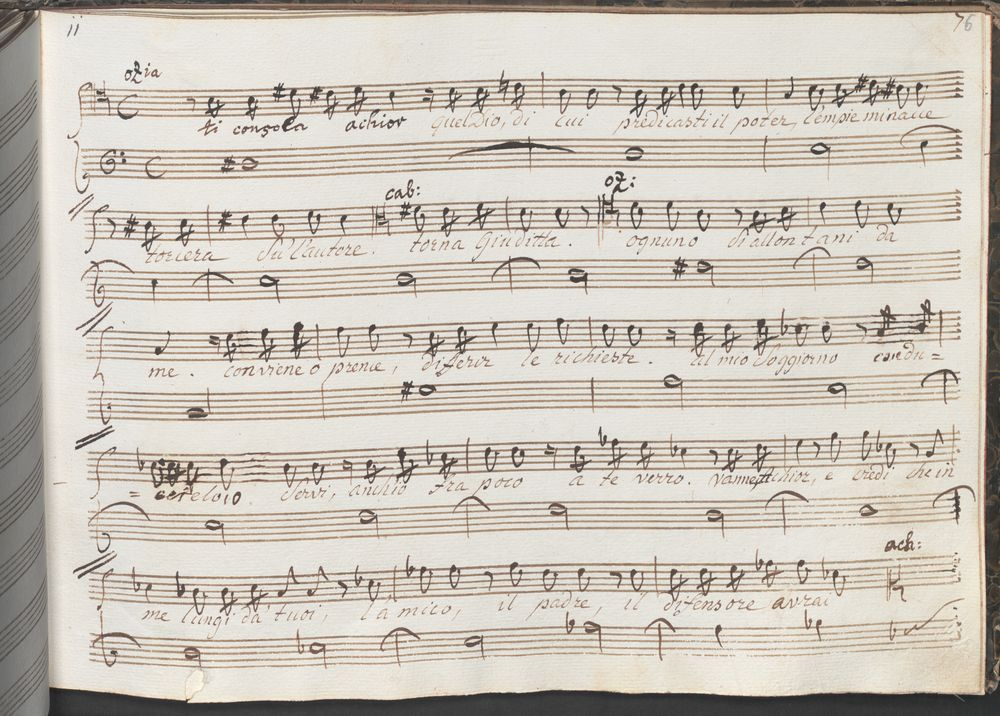 ii 76
ozia
ti consola achior quel Dio, di cui predicasti il poter, l'empie minacce
cab: oz:
torcera sull'autore. torna Giuditta. ognuno s'allontani da
me. conviene o prence, differir le richieste. al mio soggiorno condu=
=cetelo o servi, anch'io fra poco a te verro. vanne Achior, e credi che in
ach:
me lungi da' tuoi, l'amico, il padre, il difensore avrai